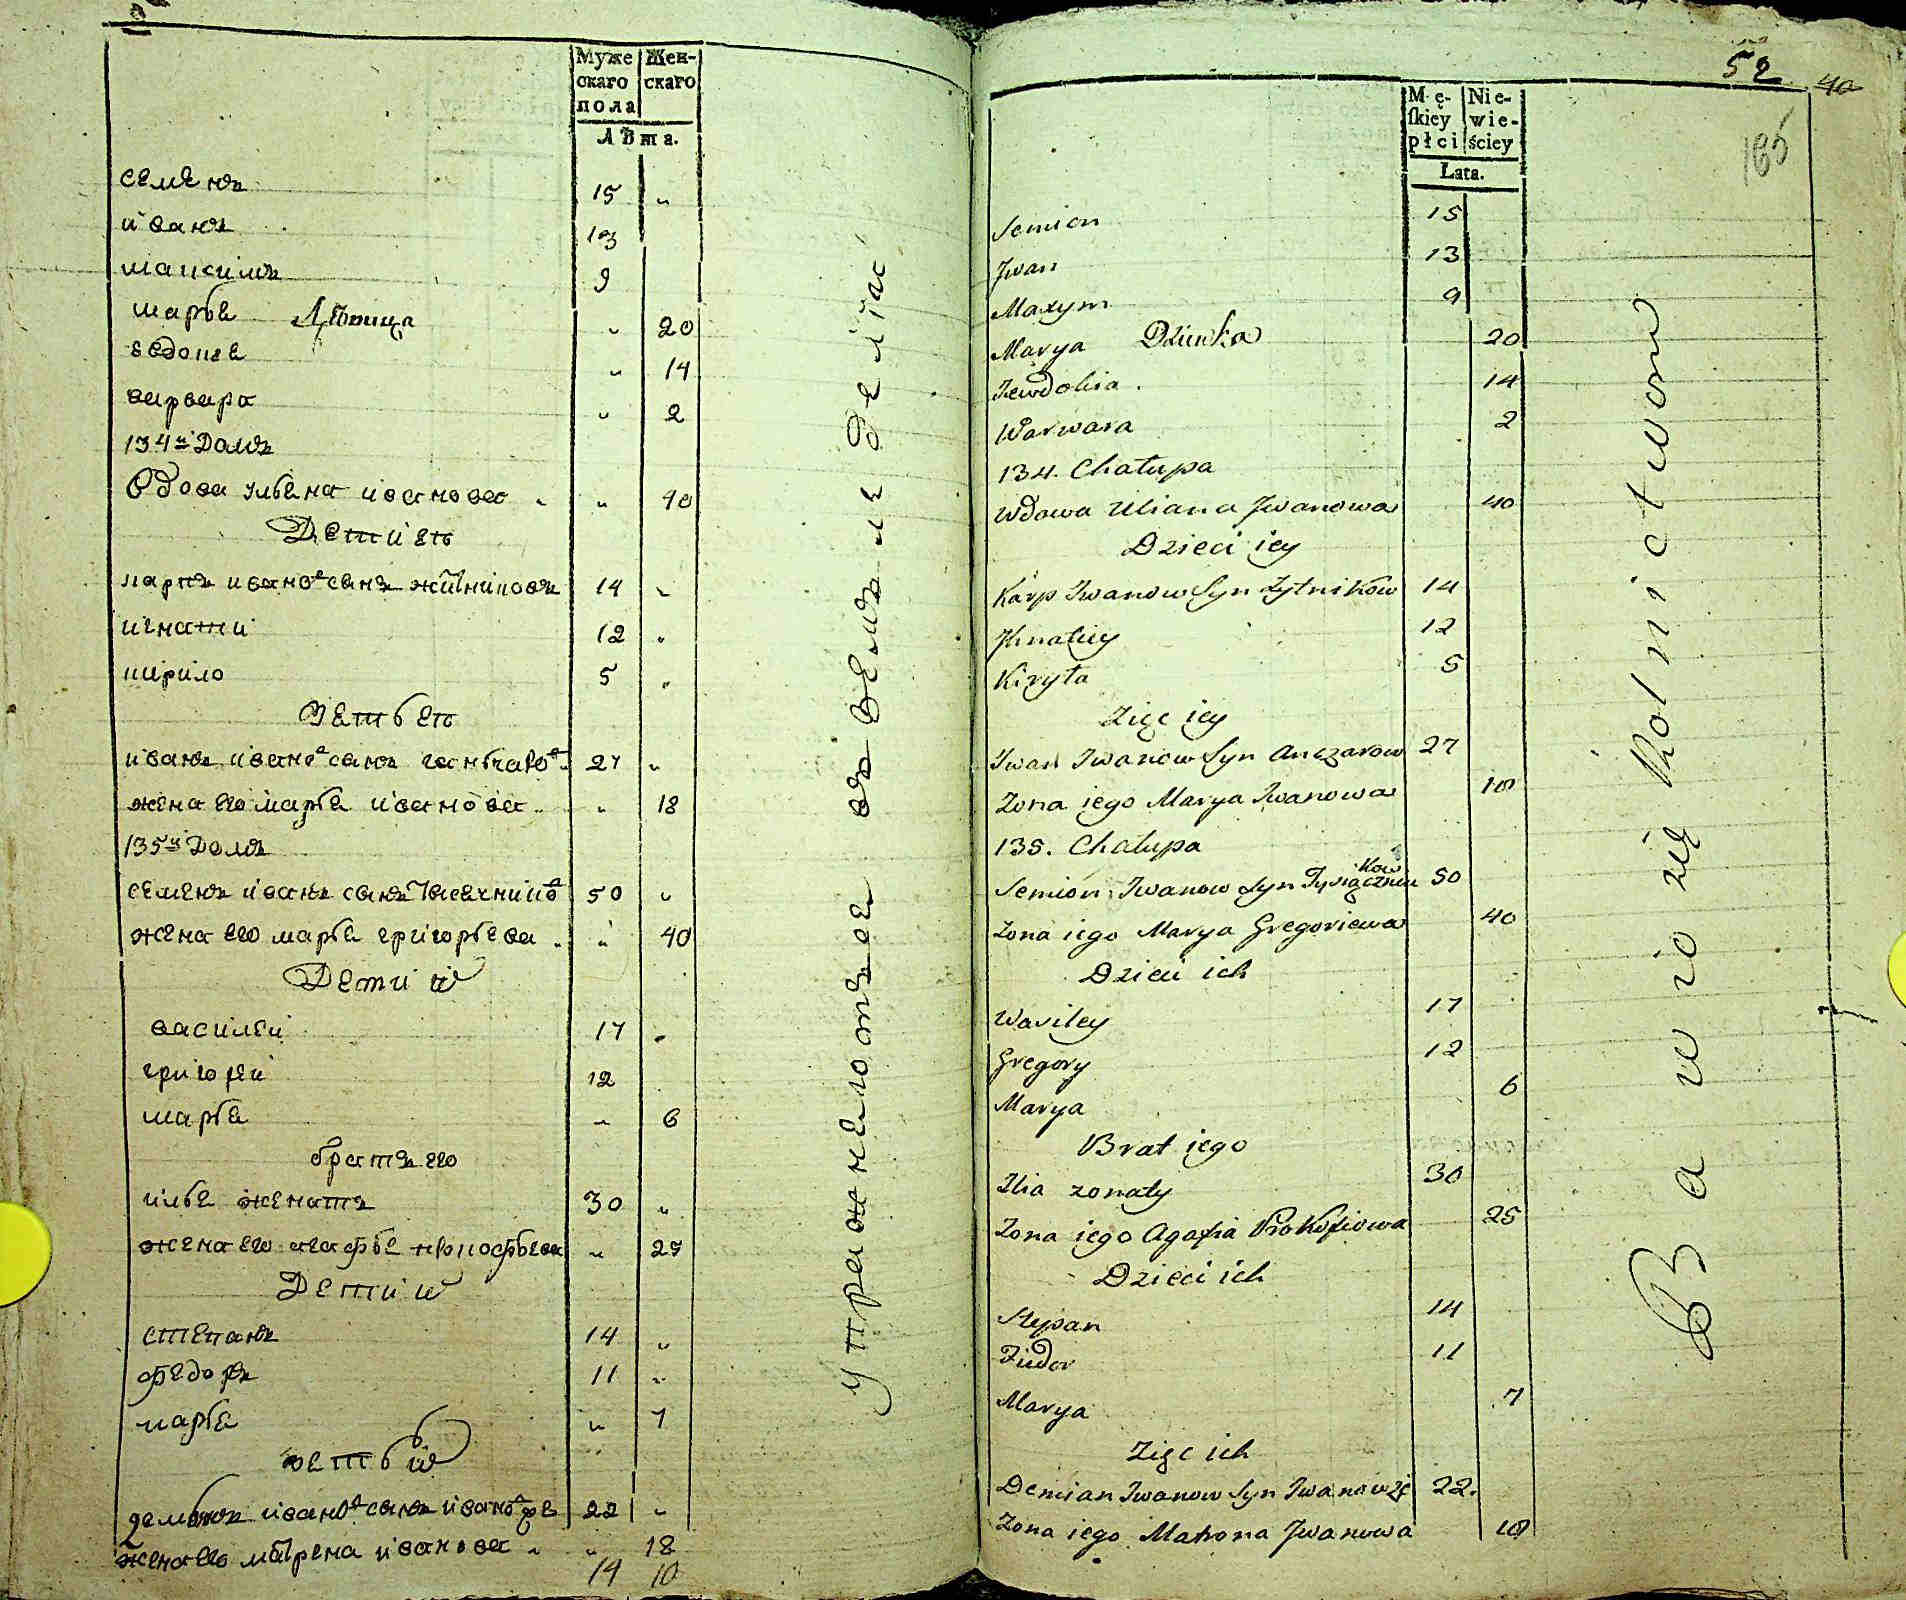 Муже Жен-
скаго скаго
пола
Лѣта.
семенъ 15 „
иванъ 13
максимъ 9
марья Дѣвица „ 20
евдокея „ 14
варвара „ 2
134й Домъ
Вдова ульяна иванова „ 40
Дети ея
карпъ иванов сынъ житниковъ 14 „
игнатий 12 „
кирило 5 „
зять ея
иванъ иванов сынъ 27 „
жена его марья иванова „ 18
135й Домъ
семенъ иванов сынъ 50 „
жена его марья григорьева „ 40
Дети их
василей 17 „
григорей 12
марья „ 6
братъ его
илья женатъ 30 „
жена его агафья прокофьева „ 25
Дети их
степанъ 14 „
федоръ 11 „
марья „ 7
зять их
демьянъ иванов сынъ 22 „
жена его матрена иванова „ 18
14 10
упражнеютъся въ земледелїас
52 40
165
Mę- Nie-
skiey wie-
płci ściey
Lata.
Semion 15
Jwan 13
Maxym 9
Marya Dziewka 20
Jewdokia 14
Warwara 2
134. Chałupa
Wdowa Uliana Jwanowa 40
Dzieci iey
Karp Jwanow Syn Zytnikow 14
Jhnatiey 12
Kiryła 5
Zięc iey
Jwan Jwanow Syn Anczarow 27
Zona iego Marya Jwanowa 18
135. Chałupa
Semion Jwanow Syn Tysiącznikow 50
Zona iego Marya Gregoriewa 40
Dzieci ich
Wasiley 17
Gregory 12
Marya 6
Brat iego
Ilia zonaty 30
Zona iego Agafia Prokofiowa 25
Dzieci ich
Stepan 14
Fiedor 11
Marya 7
Zięc ich
Demian Jwanow Syn 22.
Zona iego Matrona Jwanowa 18
Bawio się Rolnictwem